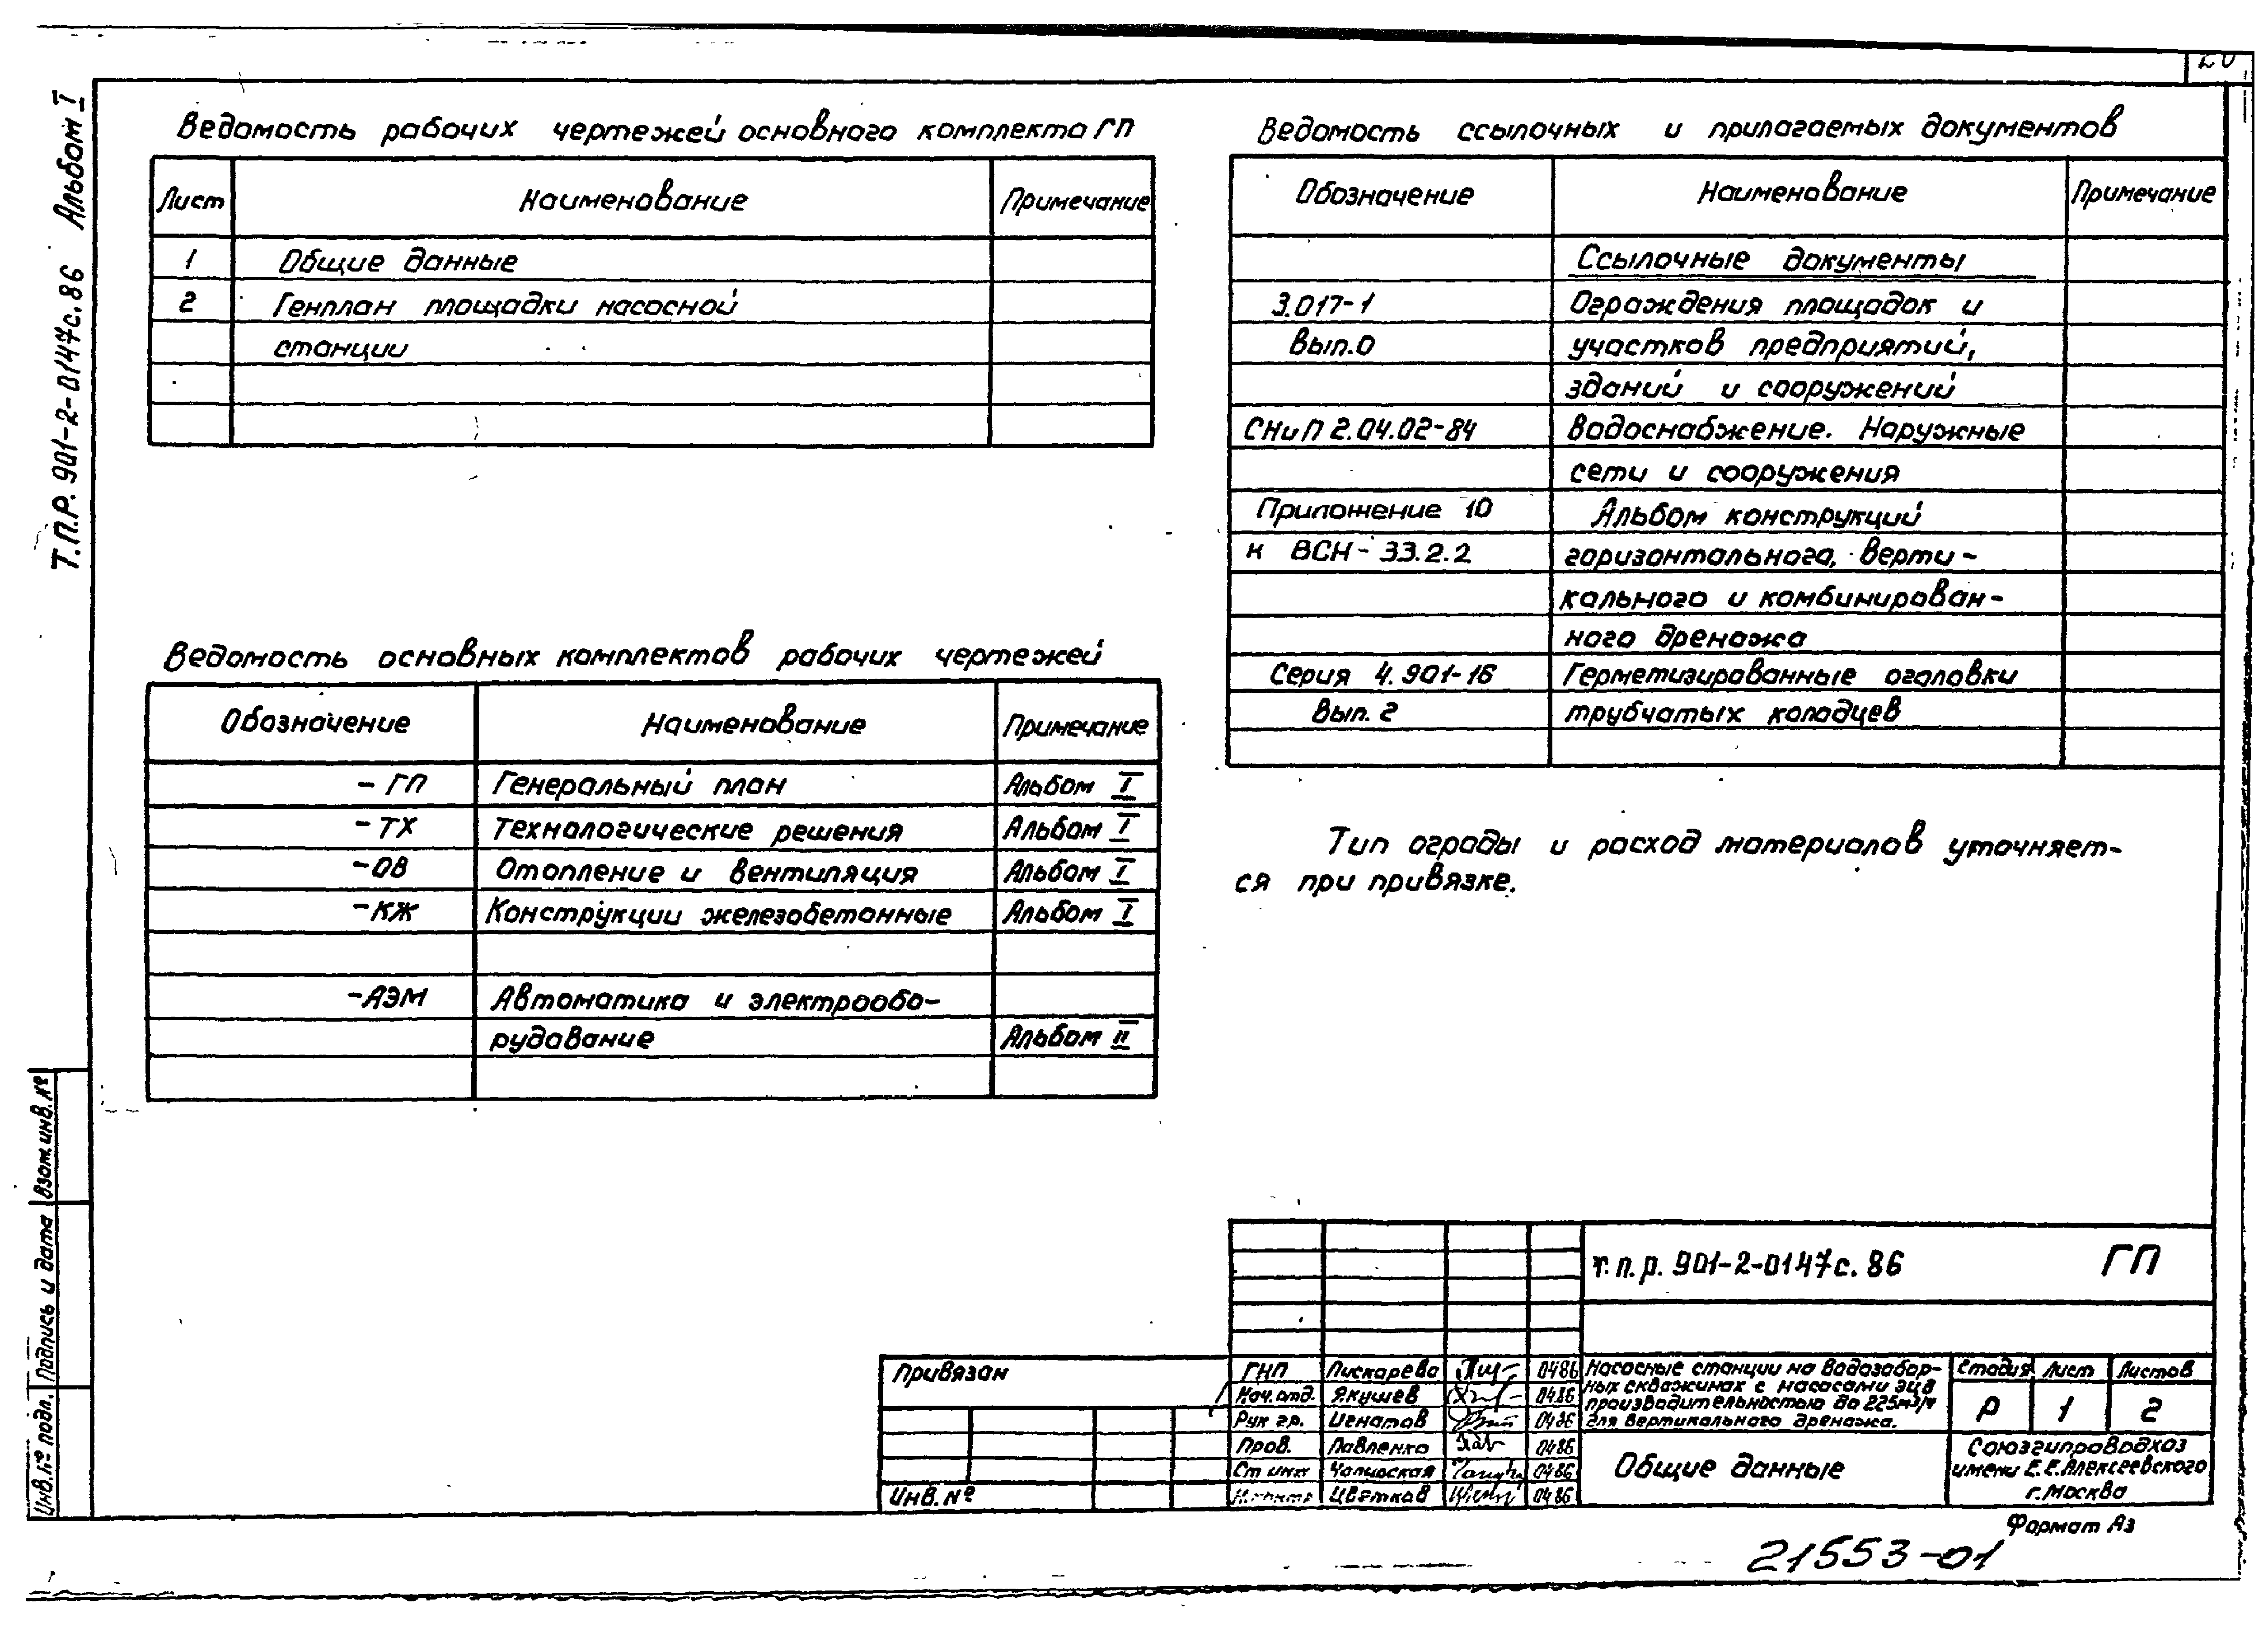 Т.П.Р. 901-2-0147с.86 Альбом I
Ведомость рабочих чертежей основного комплекта ГП
Лист Наименование Примечание
1 Общие данные
2 Генплан площадки насосной
станции
Ведомость основных комплектов рабочих чертежей
Обозначение Наименование Примечание
-ГП Генеральный план Альбом I
-ТХ Технологические решения Альбом I
-ОВ Отопление и вентиляция Альбом I
-КЖ Конструкции железобетонные Альбом I
-АЭМ Автоматика и электрообо-
рудование Альбом II
Ведомость ссылочных и прилагаемых документов
Обозначение Наименование Примечание
Ссылочные документы
3.017-1 Ограждения площадок и
Вып.0 участков предприятий,
зданий и сооружений
СНиП 2.04.02-84 Водоснабжение. Наружные
сети и сооружения
Приложение 10 Альбом конструкций
к ВСН-33.2.2 горизонтального, верти-
кального и комбинирован-
ного дренажа
Серия 4.901-16 Герметизированные оголовки
Вып. 2 трубчатых колодцев
Тип ограды и расход материалов уточняет-
ся при привязке.
Взам.инв.№
Подпись и дата
Инв.№ подл.
Привязан
Инв. №
т.п.р. 901-2-0147с.86 ГП
ГИП Пискарева 0486
Нач.отд. Якушев 0486
Рук гр. Игнатов 0486
Пров. Павленко 0486
Ст инж 0486
Цветков 0486
Насосные станции на водозабор-
ных скважинах с насосами ЭЦВ
производительностью до 225м³/ч
для вертикального дренажа.
Стадия Лист Листов
Р 1 2
Общие данные
Союзгипроводхоз
имени Е.Е.Алексеевского
г.Москва
Формат А3
21553-01